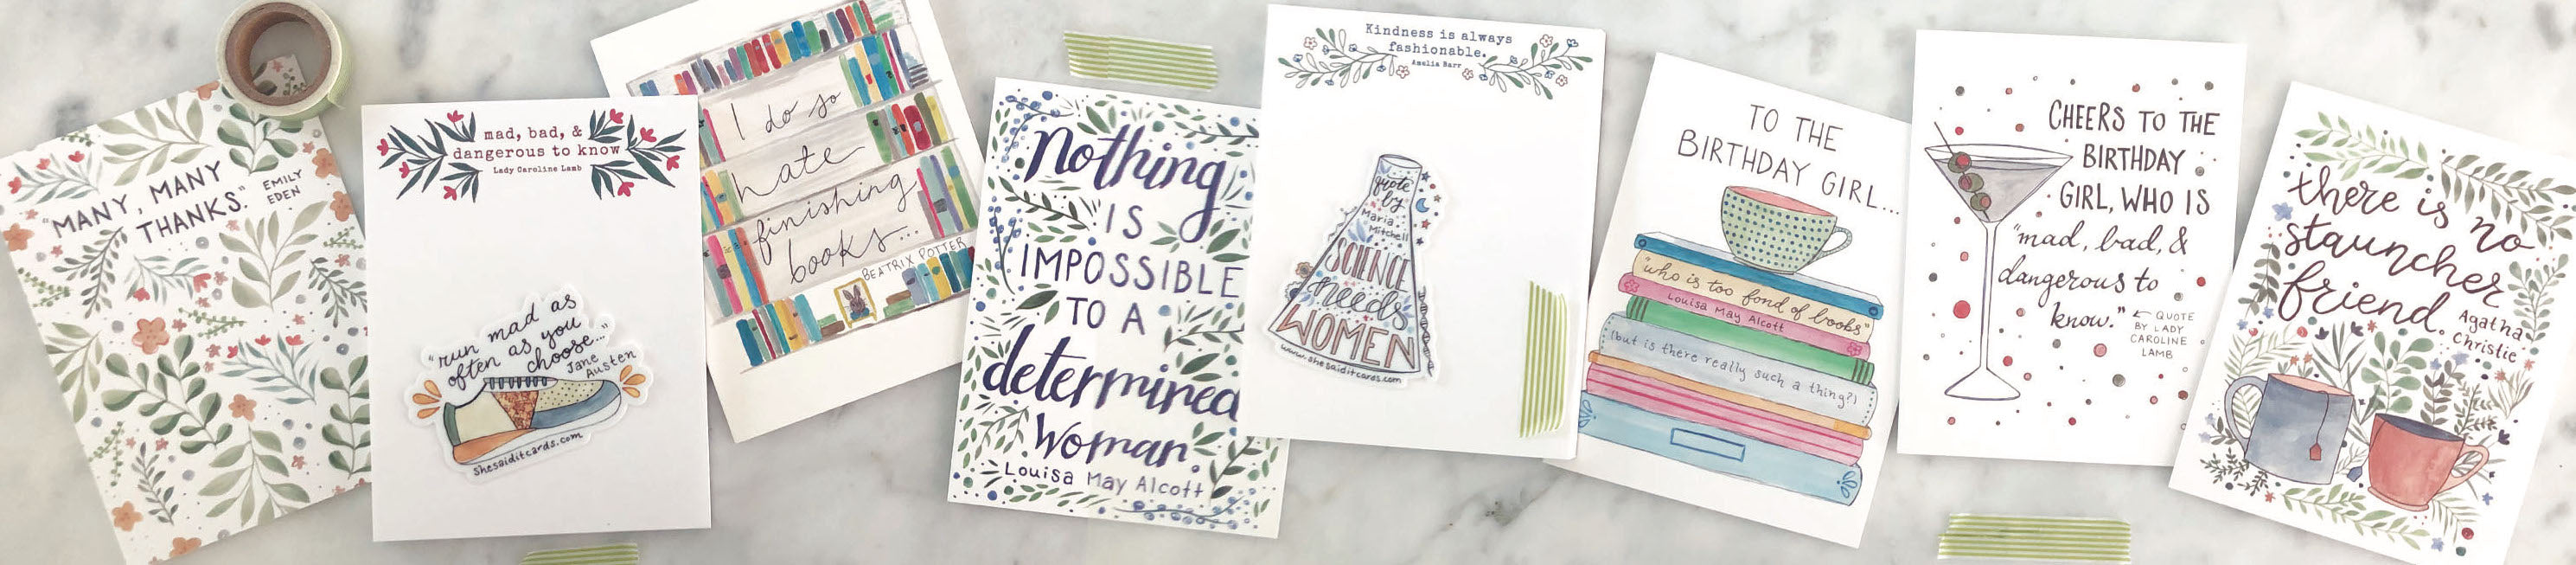 "MANY, MANY
THANKS."
EMILY
EDEN
mad, bad, &
dangerous to know
Lady Caroline Lamb
"run mad as
often as you
choose..."
Jane
Austen
shesaiditcards.com
I do so
hate
finishing
books...
BEATRIX POTTER
Nothing
IS
IMPOSSIBLE
TO A
determined
Woman.
Louisa May Alcott
Kindness is always
fashionable.
Amelia Barr
quote
by
Maria
Mitchell
SCIENCE
needs
WOMEN
www.shesaiditcards.com
TO THE
BIRTHDAY GIRL...
"who is too fond of books"
Louisa May Alcott
(but is there really such a thing?)
CHEERS TO THE
BIRTHDAY
GIRL, WHO IS
"mad, bad, &
dangerous to
know."
QUOTE
BY LADY
CAROLINE
LAMB
there is no
stauncher
friend.
Agatha
Christie